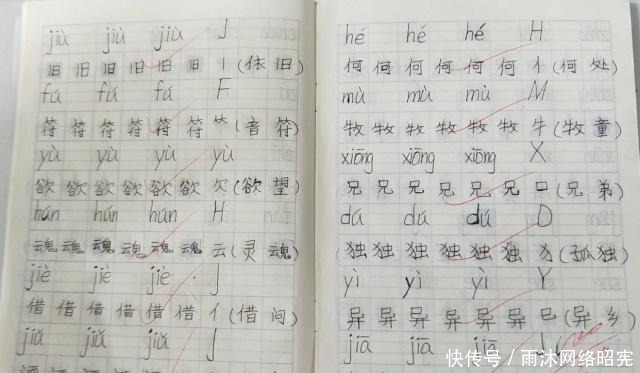 jiù jiù jiù J
旧 旧 旧 旧 旧 旧 丨(依旧)
fú fú fú F
符 符 符 符 符 符 𥫗(音符)
yù yù yù yù
欲 欲 欲 欲 欲 欲 欠(欲望)
hún hún hún H
魂 魂 魂 魂 魂 魂 云(灵魂)
jiè jiè jiè J
借 借 借 借 借 借 亻(借阅)
jiǎ jiǎ jiǎ J
hé hé hé H
何 何 何 何 何 何 亻(何处)
mù mù mù M
牧 牧 牧 牧 牧 牧 牜(牧童)
xiōng xiōng xiōng X
兄 兄 兄 兄 兄 兄 口(兄弟)
dú dú dú D
独 独 独 独 独 独 犭(孤独)
yì yì yì Y
异 异 异 异 异 异 巳(异乡)
jiā jiā jiā
快传号/雨沐网络昭宪